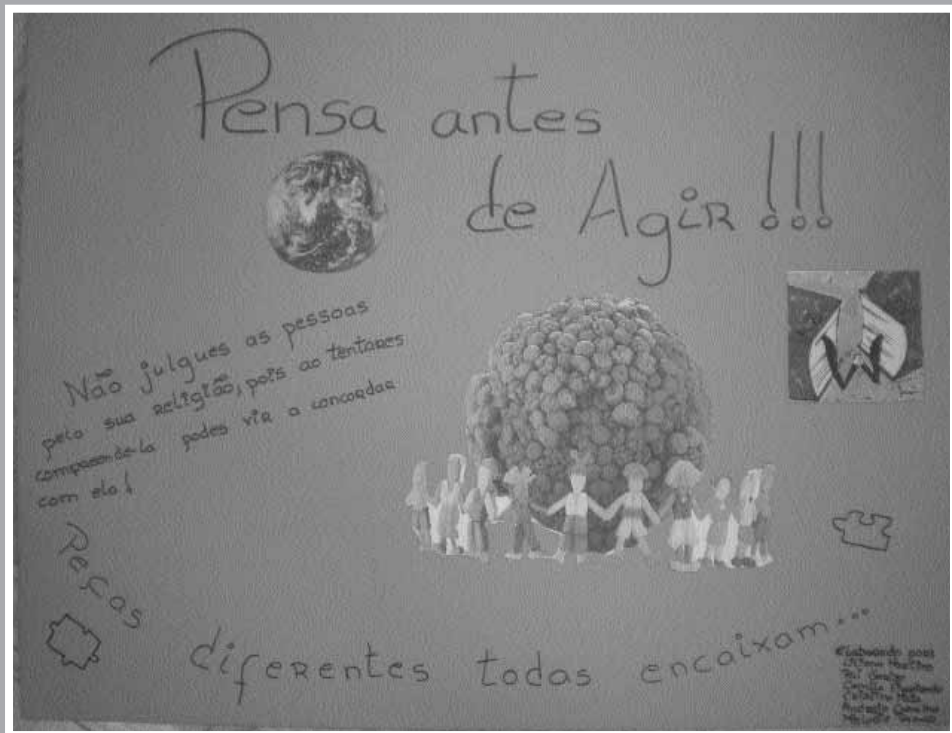 Pensa antes
de Agir!!!
Não julgues as pessoas
pela sua religião, pois ao tentares
compreende-la podes vir a concordar
com ela!
Peças diferentes todas encaixam...
Elaborado por: